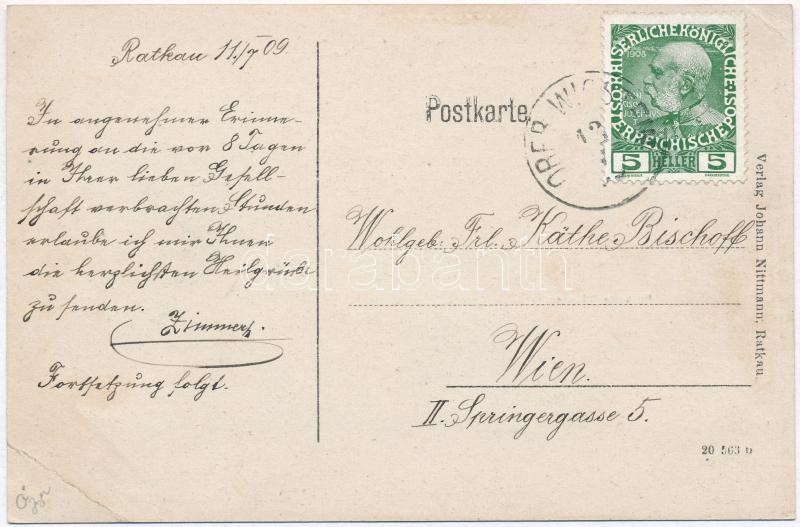 Ratkau 11./7 09
In angenehmer Erinne-
rung an die vor 8 Tagen
in Ihrer lieben Gesell-
schaft verbrachten Stunden
erlaube ich mir Ihnen
die herzlichsten Heilgrüße
zu senden.
Zimmert.
Fortsetzung folgt.
Postkarte
OBER WI
12
KAISERLICHE KÖNIGLICHE
ÖSTERREICHISCHE POST
1908
5 HELLER 5
Wohlgeb. Frl. Käthe Bischoff
Wien.
II. Springergasse 5.
Verlag Johann Nittmann, Ratkau
20 563 b
darabanth